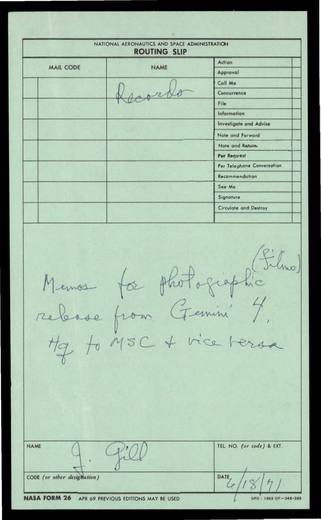 NATIONAL AERONAUTICS AND SPACE ADMINISTRATION
ROUTING SLIP
MAIL CODE
NAME
Action
Approval
Call Me
Concurrence
File
Information
Investigate and Advise
Note and Forward
Note and Return
Per Request
Per Telephone Conversation
Recommendation
See Me
Signature
Circulate and Destroy
Records
(Films)
Memos for photographic
release from Gemini 4.
Hq to MSC + vice versa
NAME
J. Gill
TEL. NO. (or code) & EXT.
CODE (or other designation)
DATE
6/18/71
NASA FORM 26 APR 69 PREVIOUS EDITIONS MAY BE USED